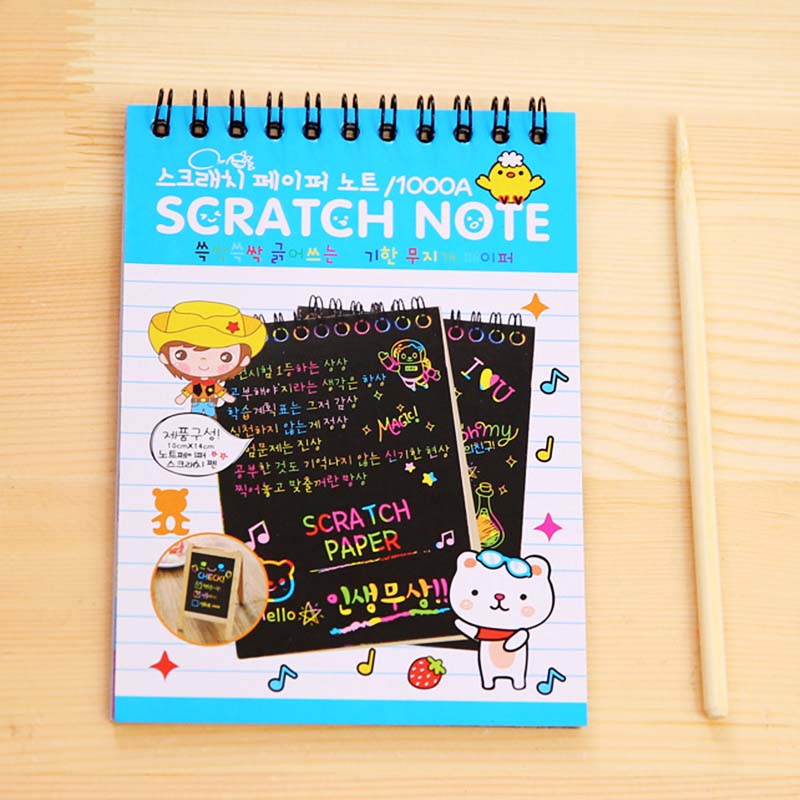 스크래치 페이퍼 노트 /1000A
SCRATCH NOTE
쓱싹쓱싹 긁어쓰는 기한 무지개 페이퍼
시험 1등하는 상상
공부해야지라는 생각은 하상
학습계획표는 그저 감상
실천하지 않는게 정상
문제는 진상
공부한 것도 기억나지 않는 신기한 현상
찍어놓고 맞출꺼란 망상
MAGIC!
SCRATCH
PAPER
Hello
인생무상!!
I U
Oh my
친구!
제품구성!
10cm X 14cm
노트페이퍼
스크래치 펜
CHECK!